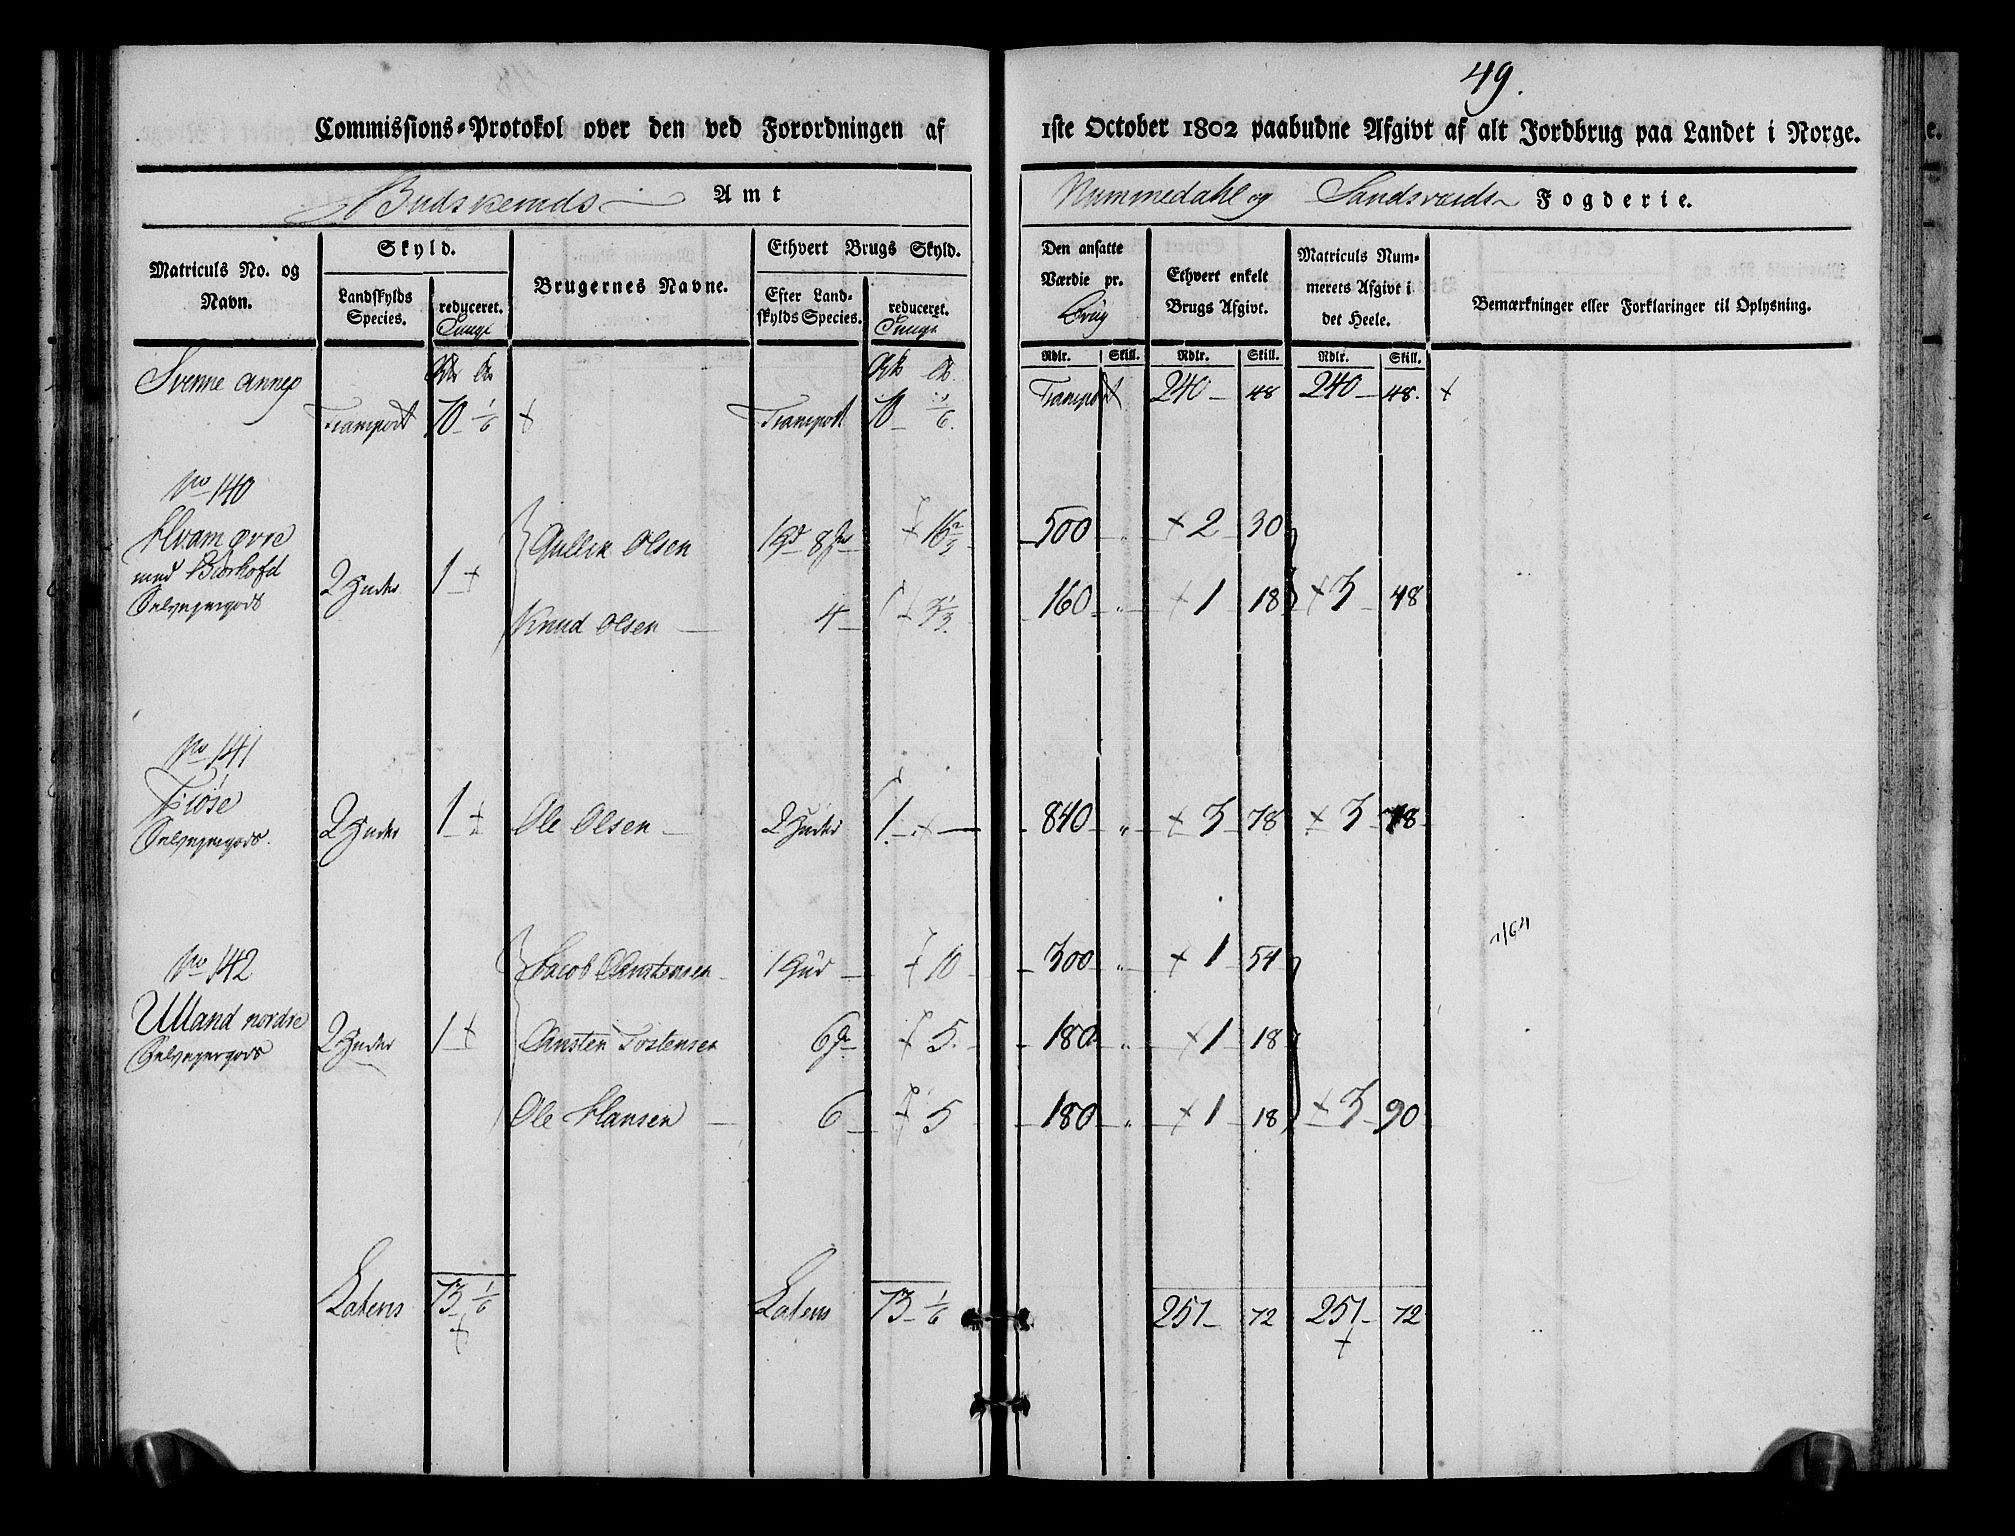 49.
Commissions-Protokol over den ved Forordningen af 1ste October 1802 paabudne Afgivt af alt Jordbrug paa Landet i Norge.
Budskeruds Amt Nummedahl og Sandsværds Fogderie.
Matriculs No. og Navn.
Skyld.
Landskylds Species.
reduceret.
Tunge
Brugernes Navne.
Ethvert Brugs Skyld.
Efter Landskylds Species.
reduceret.
Tunge
Den ansatte Værdie pr. Brug
Ethvert enkelt Brugs Afgivt.
Matriculs Nummerets Afgivt i det Heele.
Bemærkninger eller Forklaringer til Oplysning.
Rdlr. Skill. Rdlr. Skill. Rdlr. Skill.
Svenne annex
Transport 70 1/6 + Transport 70 1/6 Transport 240 48 240 48. +
No 140
Hvam øvre
med
Selveiergods
2 Huder 1 +
Gullik Olsen 1 Hd 8 + 16 2/3 500 " + 2 30
Knud Olsen 4 + 3 1/3 160 " + 1 18 + 3 48
No 141
Fiøse
Selveiergods.
2 Huder 1 + Ole Olsen 2 Huder 1 + 840 " + 3 78 + 3 78
No 142
Ulland nordre
Selveiergods
2 Huder 1 +
Jacob Anstensen 1 Hud + 10 300 " + 1 54
Ansten Tostensen 6 + 5 180 " + 1 18
Ole Hansen 6 + 5 180 " + 1 18 + 3 90
Lateris 73 1/6 + Lateris 73 1/6 251 72 251 72 +